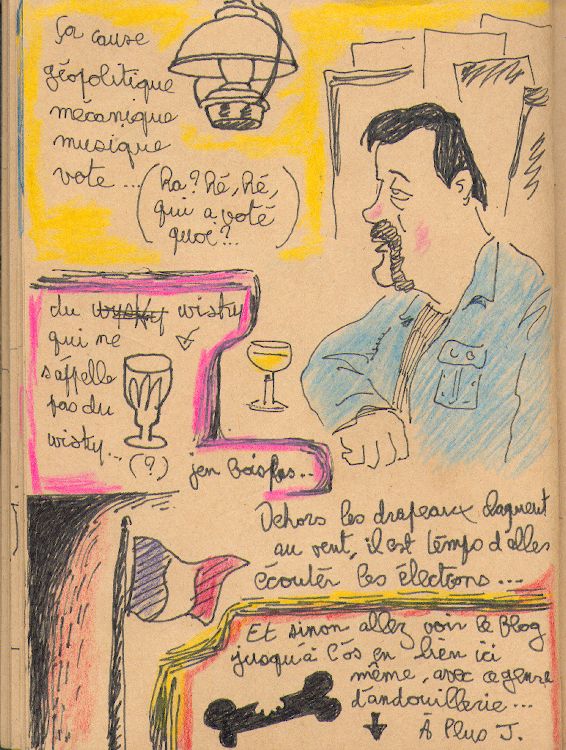 ça cause
géopolitique
mécanique
musique
vote... (ha? hé, hé,
qui a voté
quoi?...)
du wisky
qui ne
s'appelle
pas du
wisky... (?)
j'en bois pas...
Dehors les drapeaux claquent
au vent, il est temps d'alles
écouter les élections...
Et sinon allez voir le blog
jusqu'à l'os en lien ici
même, avec ce genre
d'andouillerie...
À Plus J.